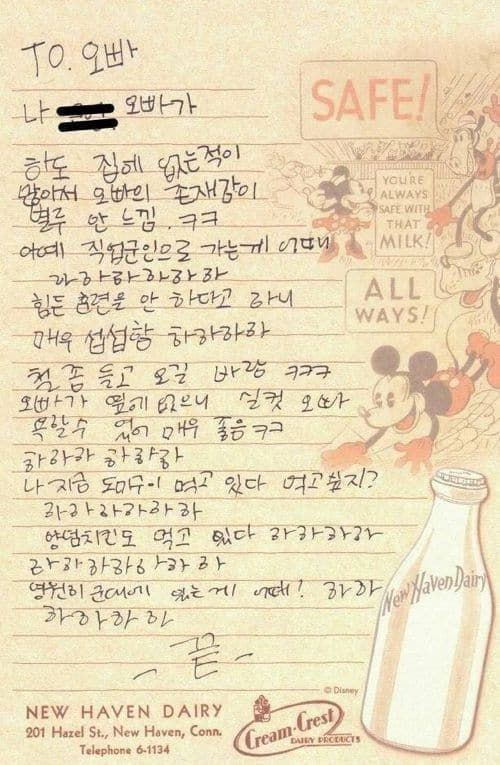 TO. 오빠
나 오빠가
하도 집에 없는적이
많아서 오빠의 존재감이
별루 안 느낌. ㅋㅋ
아예 직업군인으로 가는게 어때
하하하하하하
힘든 훈련을 안 하다고 하니
매우 섭섭함 하하하하
철 좀 들고 오길 바람 ㅋㅋㅋ
오빠가 옆에 없으니 실컷 오빠
욕할수 있어 매우 좋음ㅋㅋ
하하하 하하하
나 지금 먹고 있다 먹고싶지?
하하하하하하
양념치킨도 먹고 있다 하하하하
하하하하하하하
영원히 군대에 있는게 어때! 하하
하하하하
- 끝 -
SAFE!
YOU'RE
ALWAYS
SAFE WITH
THAT
MILK!
ALL
WAYS!
New Haven Dairy
© Disney
NEW HAVEN DAIRY
201 Hazel St., New Haven, Conn.
Telephone 6-1134
Cream-Crest
DAIRY PRODUCTS